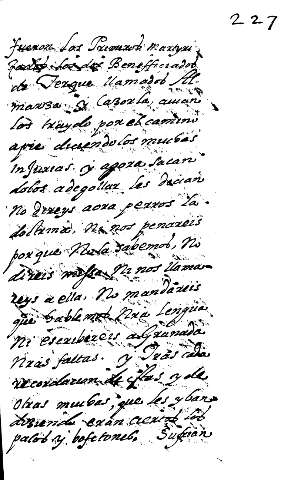 227
fueron los Primeros martyri
zados los dos Benefficiados
de Terque llamados Al
maroza y Cazorla, auian
los traydo por el camino
apie diciendolos muchas
Injurias. y agora sacan
dolos adegollar les decian
No direys aora perros la
doctrina, Ni nos penareis
porque No la sabemos, No
direis missa Ni nos llama
reys a ella. No mandareis
que hablemos Nra lengua
Ni escribereis a Granada
Nras faltas. y Tras cada
recordacion de estas y de
otras muchas, que les yban
diziendo eran ciertos los
palos y bofetones. Sufrian